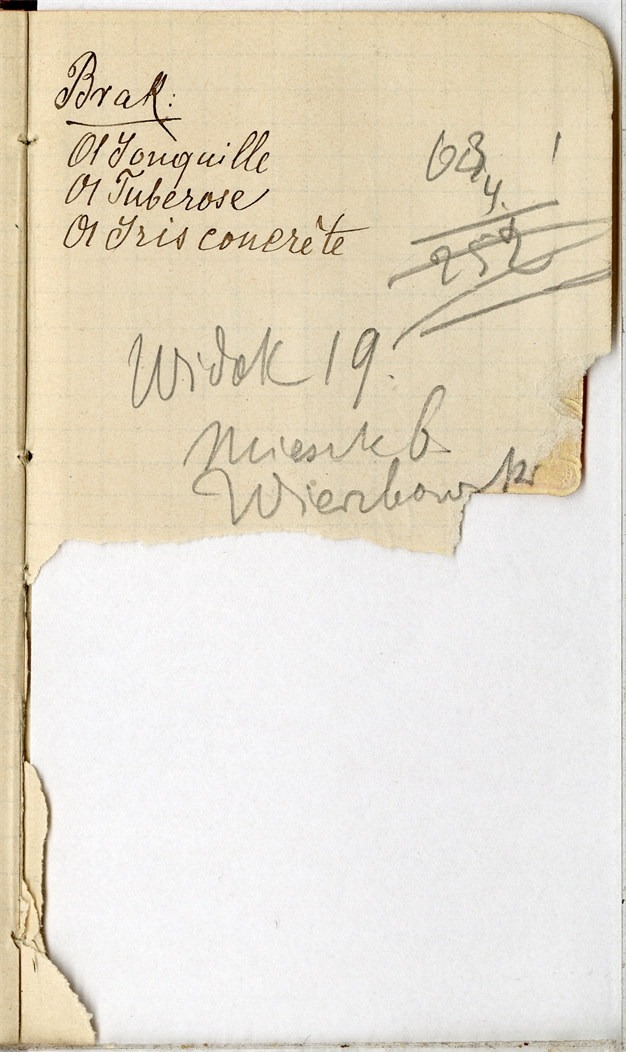 Brak:
Ol Jonquille
Ol Tuberose
Ol Iris concrète
63
4.
252
Widok 19.
Mieszk 6
Wierzbowski